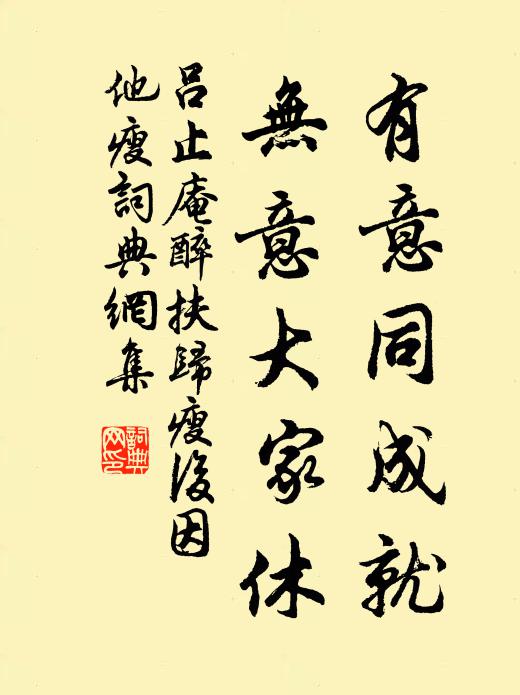 有意同成就
無意大家休
呂止庵醉扶歸瘦後因
他瘦詞典網集
詞典
網印